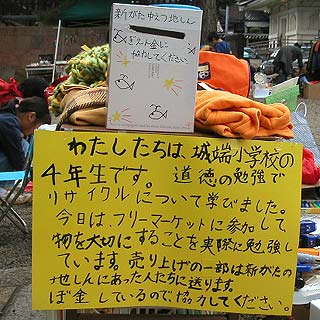 新がた中えつ地しん
ぎえん金に
協力してください
わたしたちは、城端小学校の
4年生です。 道徳の勉強で
リサイクルについて学びました。
今日は、フリーマーケットに参加して
物を大切にすることを実際に勉強し
ています。売り上げの一部は新がたの
地しんにあった人たちに送ります。
ぼ金しているので協力してください。